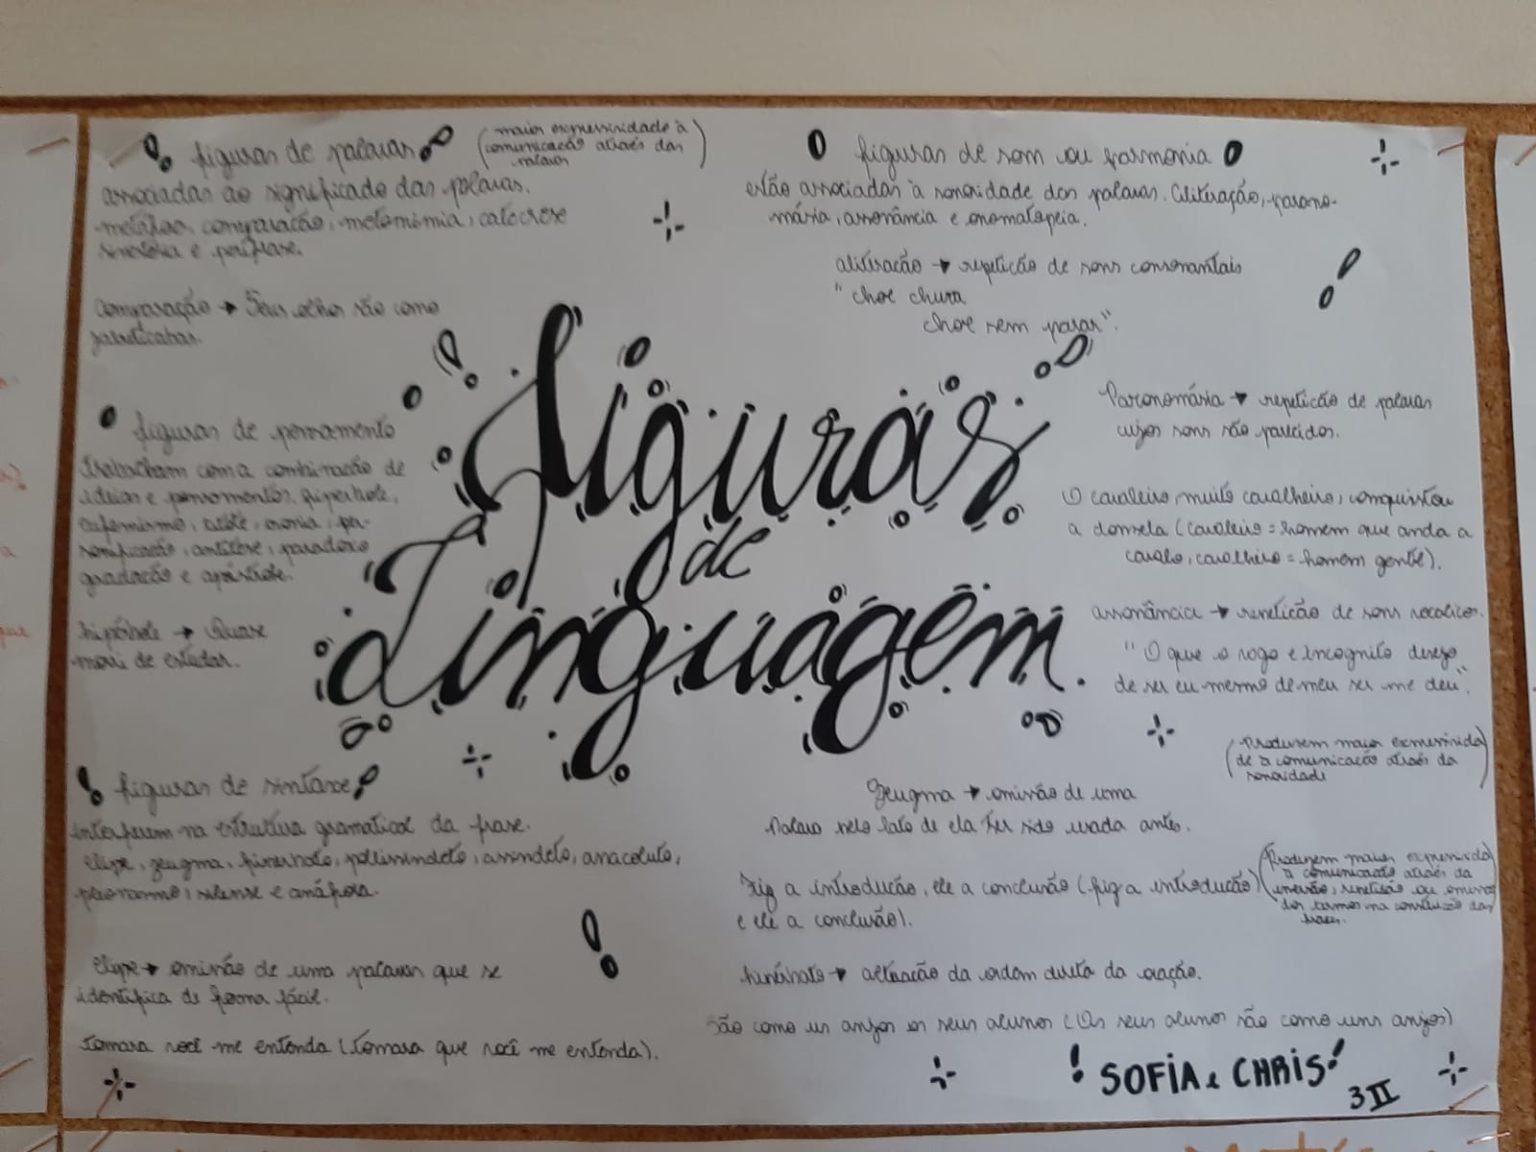 figuras de palavras
(maior expressividade à
comunicação através das
palavras)
associadas ao significado das palavras.
metáfora, comparação, metonímia, catacrese
sinestesia e perífrase.
Comparação → Seus olhos são como
jabuticabas.
figuras de pensamento
trabalham com a combinação de
ideias e pensamentos. hipérbole,
eufemismo, litote, ironia, per-
sonificação, antítese, paradoxo
gradação e apóstrofe.
hipérbole → Quase
morri de estudar.
figuras de som ou harmonia
estão associadas à sonoridade das palavras. aliteração, parono-
másia, assonância e onomatopeia.
aliteração → repetição de sons consonantais
"chove chuva
chove sem parar".
Paronomásia → repetição de palavras
cujos sons são parecidos.
O cavaleiro, muito cavalheiro, conquistou
a donzela (cavaleiro = homem que anda a
cavalo, cavalheiro = homem gentil).
assonância → repetição de sons vocálicos.
"O que o vago e incognito desejo
de ser eu mesmo de meu ser me deu".
(Produzem maior expressivida
de à comunicação através da
sonoridade)
figuras de Linguagem.
figuras de sintaxe
interferem na estrutura gramatical da frase.
elipse, zeugma, hipérbato, polissíndeto, assíndeto, anacoluto,
pleonasmo, silepse e anáfora.
elipse → omissão de uma palavra que se
identifica de forma fácil.
tomara você me entenda (tomara que você me entenda).
Zeugma → omissão de uma
palavra pelo fato de ela ter sido usada antes.
Fiz a introdução, ele a conclusão (fiz a introdução
e ele a conclusão).
(Produzem maior expressivida
à comunicação através da
inversão, repetição ou omissão
dos termos na construção das
frases.
hipérbato → alteração da ordem direta da oração.
São como uns anjos os seus alunos (Os seus alunos são como uns anjos)
SOFIA e CHRIS!
3 II